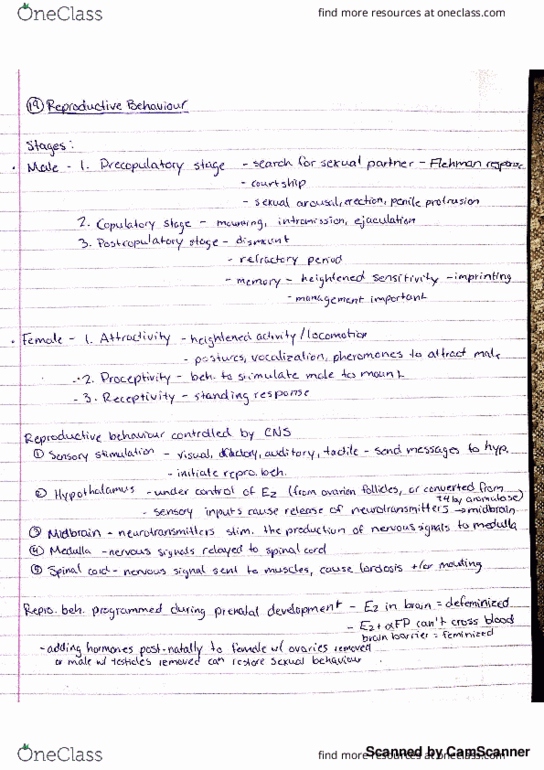 OneClass
find more resources at oneclass.com
19 Reproductive Behaviour
Stages:
• Male - 1. Precopulatory stage - search for sexual partner - Flehman response
- courtship
- sexual arousal, erection, penile protrusion
2. Copulatory stage - mounting, intromission, ejaculation
3. Postcopulatory stage - dismount
- refractory period
- memory - heightened sensitivity - imprinting
- management important
• Female - 1. Attractivity - heightened activity / locomotion
- postures, vocalization, pheromones to attract male
2. Proceptivity - beh. to stimulate male to mount
- 3. Receptivity - standing response
Reproductive behaviour controlled by CNS
① Sensory stimulation - visual, olfactory, auditory, tactile - send messages to hyp.
- initiate repro. beh.
② Hypothalamus - under control of E2 (from ovarian follicles, or converted from
T4 by aromatase)
- sensory inputs cause release of neurotransmitters → midbrain
③ Midbrain - neurotransmitters stim. the production of nervous signals to medulla
④ Medulla - nervous signals relayed to spinal cord
⑤ Spinal cord - nervous signal sent to muscles, cause lordosis +/or mounting
Repro. beh. programmed during prenatal development - E2 in brain = defeminized
- E2 + αFP can't cross blood
brain barrier = feminized
- adding hormones post-natally to female w/ ovaries removed
or male w/ testicles removed can restore sexual behaviour
OneClass
find more resources at oneclass.com
Scanned by CamScanner